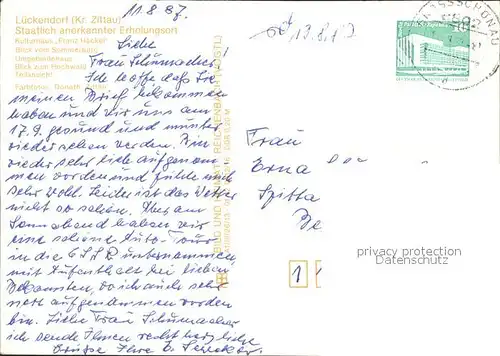 11.8.87.
Lückendorf (Kr. Zittau)
Staatlich anerkannter Erholungsort
Kulturhaus „Franz Häckel"
Blick vom Sommerberg
Umgebindehaus
Blick zum Hochwald
Teilansicht
Liebe
Frau Schumacher
Ich hoffe daß Sie
meinen Brief bekommen
haben und wir uns am
17.9. gesund und munter
wieder sehen werden. Bin
wieder sehr lieb aufgenom
men worden und fühle mich
sehr wohl. Leider ist das Wetter
nicht so schön. Aber am
Sonnabend haben wir
eine schöne Auto-Tour
in die ČSSR unternommen,
mit Aufenthalt bei lieben
Bekannten, wo ich auch sehr
nett aufgenommen worden
bin. Liebe Frau Schumacher
ich sende Ihnen recht herzliche
Grüße Ihre E.
BILD UND HEIMAT REICHENBACH (VOGTL)
13.8.87
Frau
Erna
Spitta
Be
1
privacy protection
Datenschutz